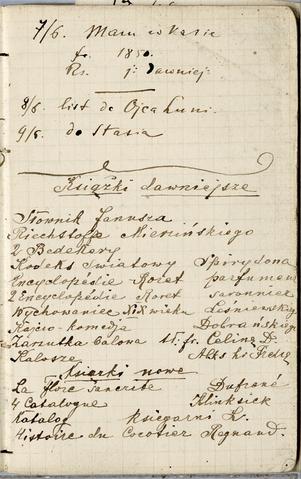 7/6. Mam w kasie
fr. 1850.
Rs. j. dawniej.
8/6. list do Ojca Luni.
9/6. do Stasia
Książki dawniejsze
Słownik Janusza
Riechstoffe Mierzińskiego
2 Bedekery
Kodeks Światowy Spirydona
Encyclopédie Roret parfumeur
2 Encyclopédie Roret savonnier
Wychowaniec XIX wieku Leśniewskiej
Kościo-komedja Dobrańskiego
Zarzutka balowa
Kalosze
Książki nowe
La Flore
4 Catalogue Klinksick
Katalog księgarni K.
Histoire du Cocotier Regnaud.